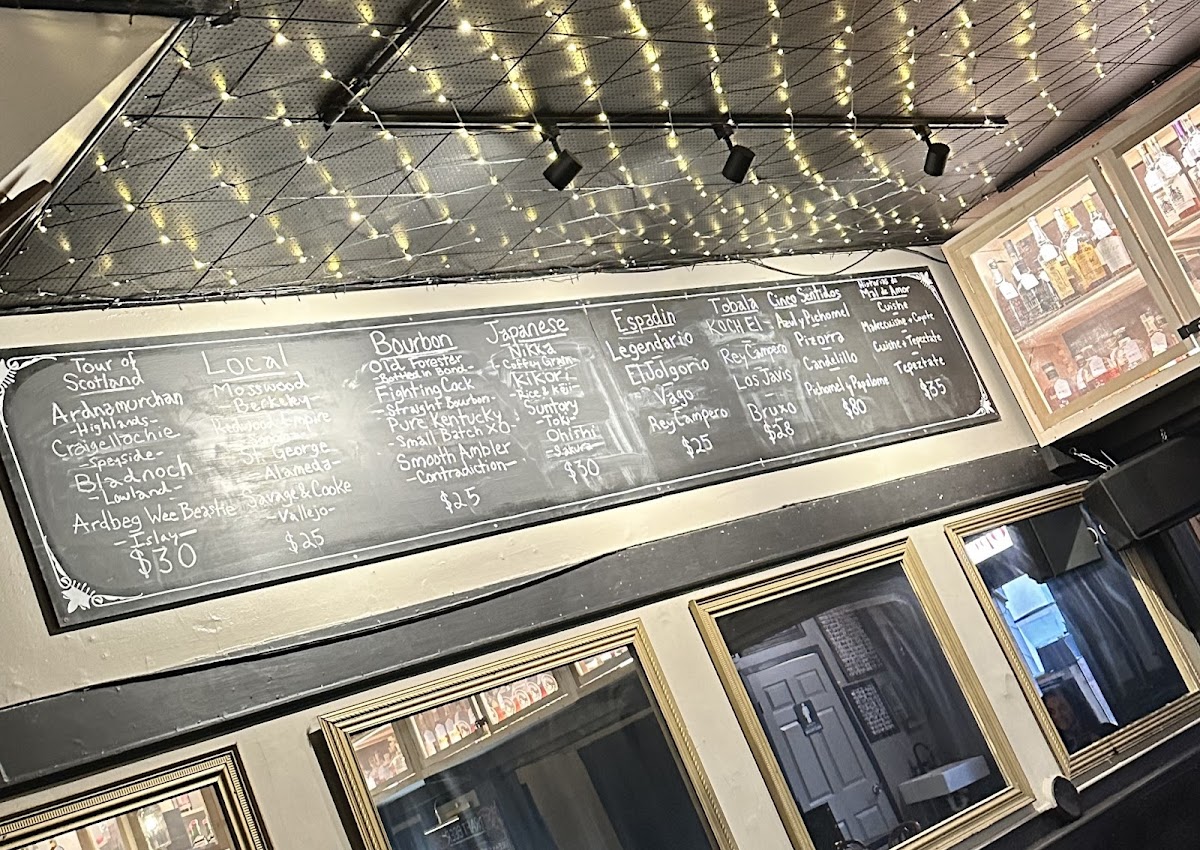 Tour of
Scotland
Ardnamurchan
-Highlands-
Craigellochie
-Speyside-
Bladnoch
-Lowland-
Ardbeg Wee Beastie
-Islay-
$30
Local
Mosswood
-Berkeley-
Redwood Empire
St. George
-Alameda-
Savage & Cooke
-Vallejo-
$25
Bourbon
Old Forester
-Bottled in Bond-
Fighting Cock
-Straight Bourbon-
Pure Kentucky
-Small Batch XO-
Smooth Ambler
-Contradiction-
$25
Japanese
Nikka
-Coffey Grain-
KIKORI
-Rice & Koji-
Suntory
-Toki-
Ohishi
-Sakura-
$30
Espadin
Legendario
El Jolgorio
Vago
Rey Campero
$25
Tobala
KOCH El
Rey Campero
Los Javis
Bruxo
$28
Cinco Sentidos
Azul y Pichomel
Pizorra
Candalillo
Pichomel y Papalome
$80
Historias de
Mal de Amor
Cuishe
Madrecuishe e Coyote
Cuishe e Tepeztate
Tepeztate
$35